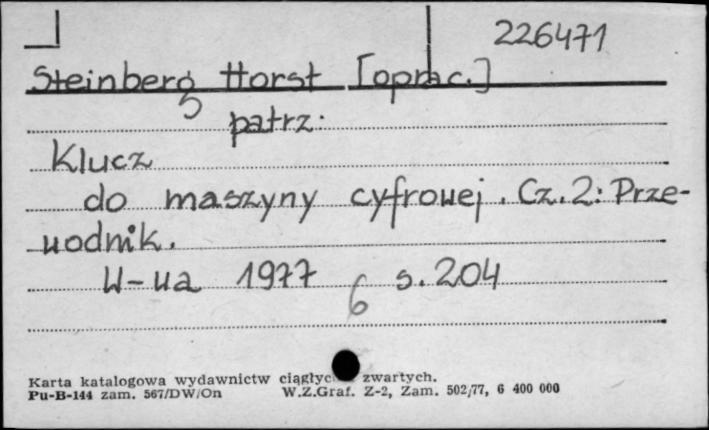 226471
Steinberg Horst [oprac.]
patrz:
Klucz
do maszyny cyfrowej. Cz. 2: Prze-
wodnik.
W-wa 1977 s. 204
6
Karta katalogowa wydawnictw ciągłyc zwartych.
Pu-B-144 zam. 567/DW/On W.Z.Graf. Z-2, Zam. 502/77, 6 400 000